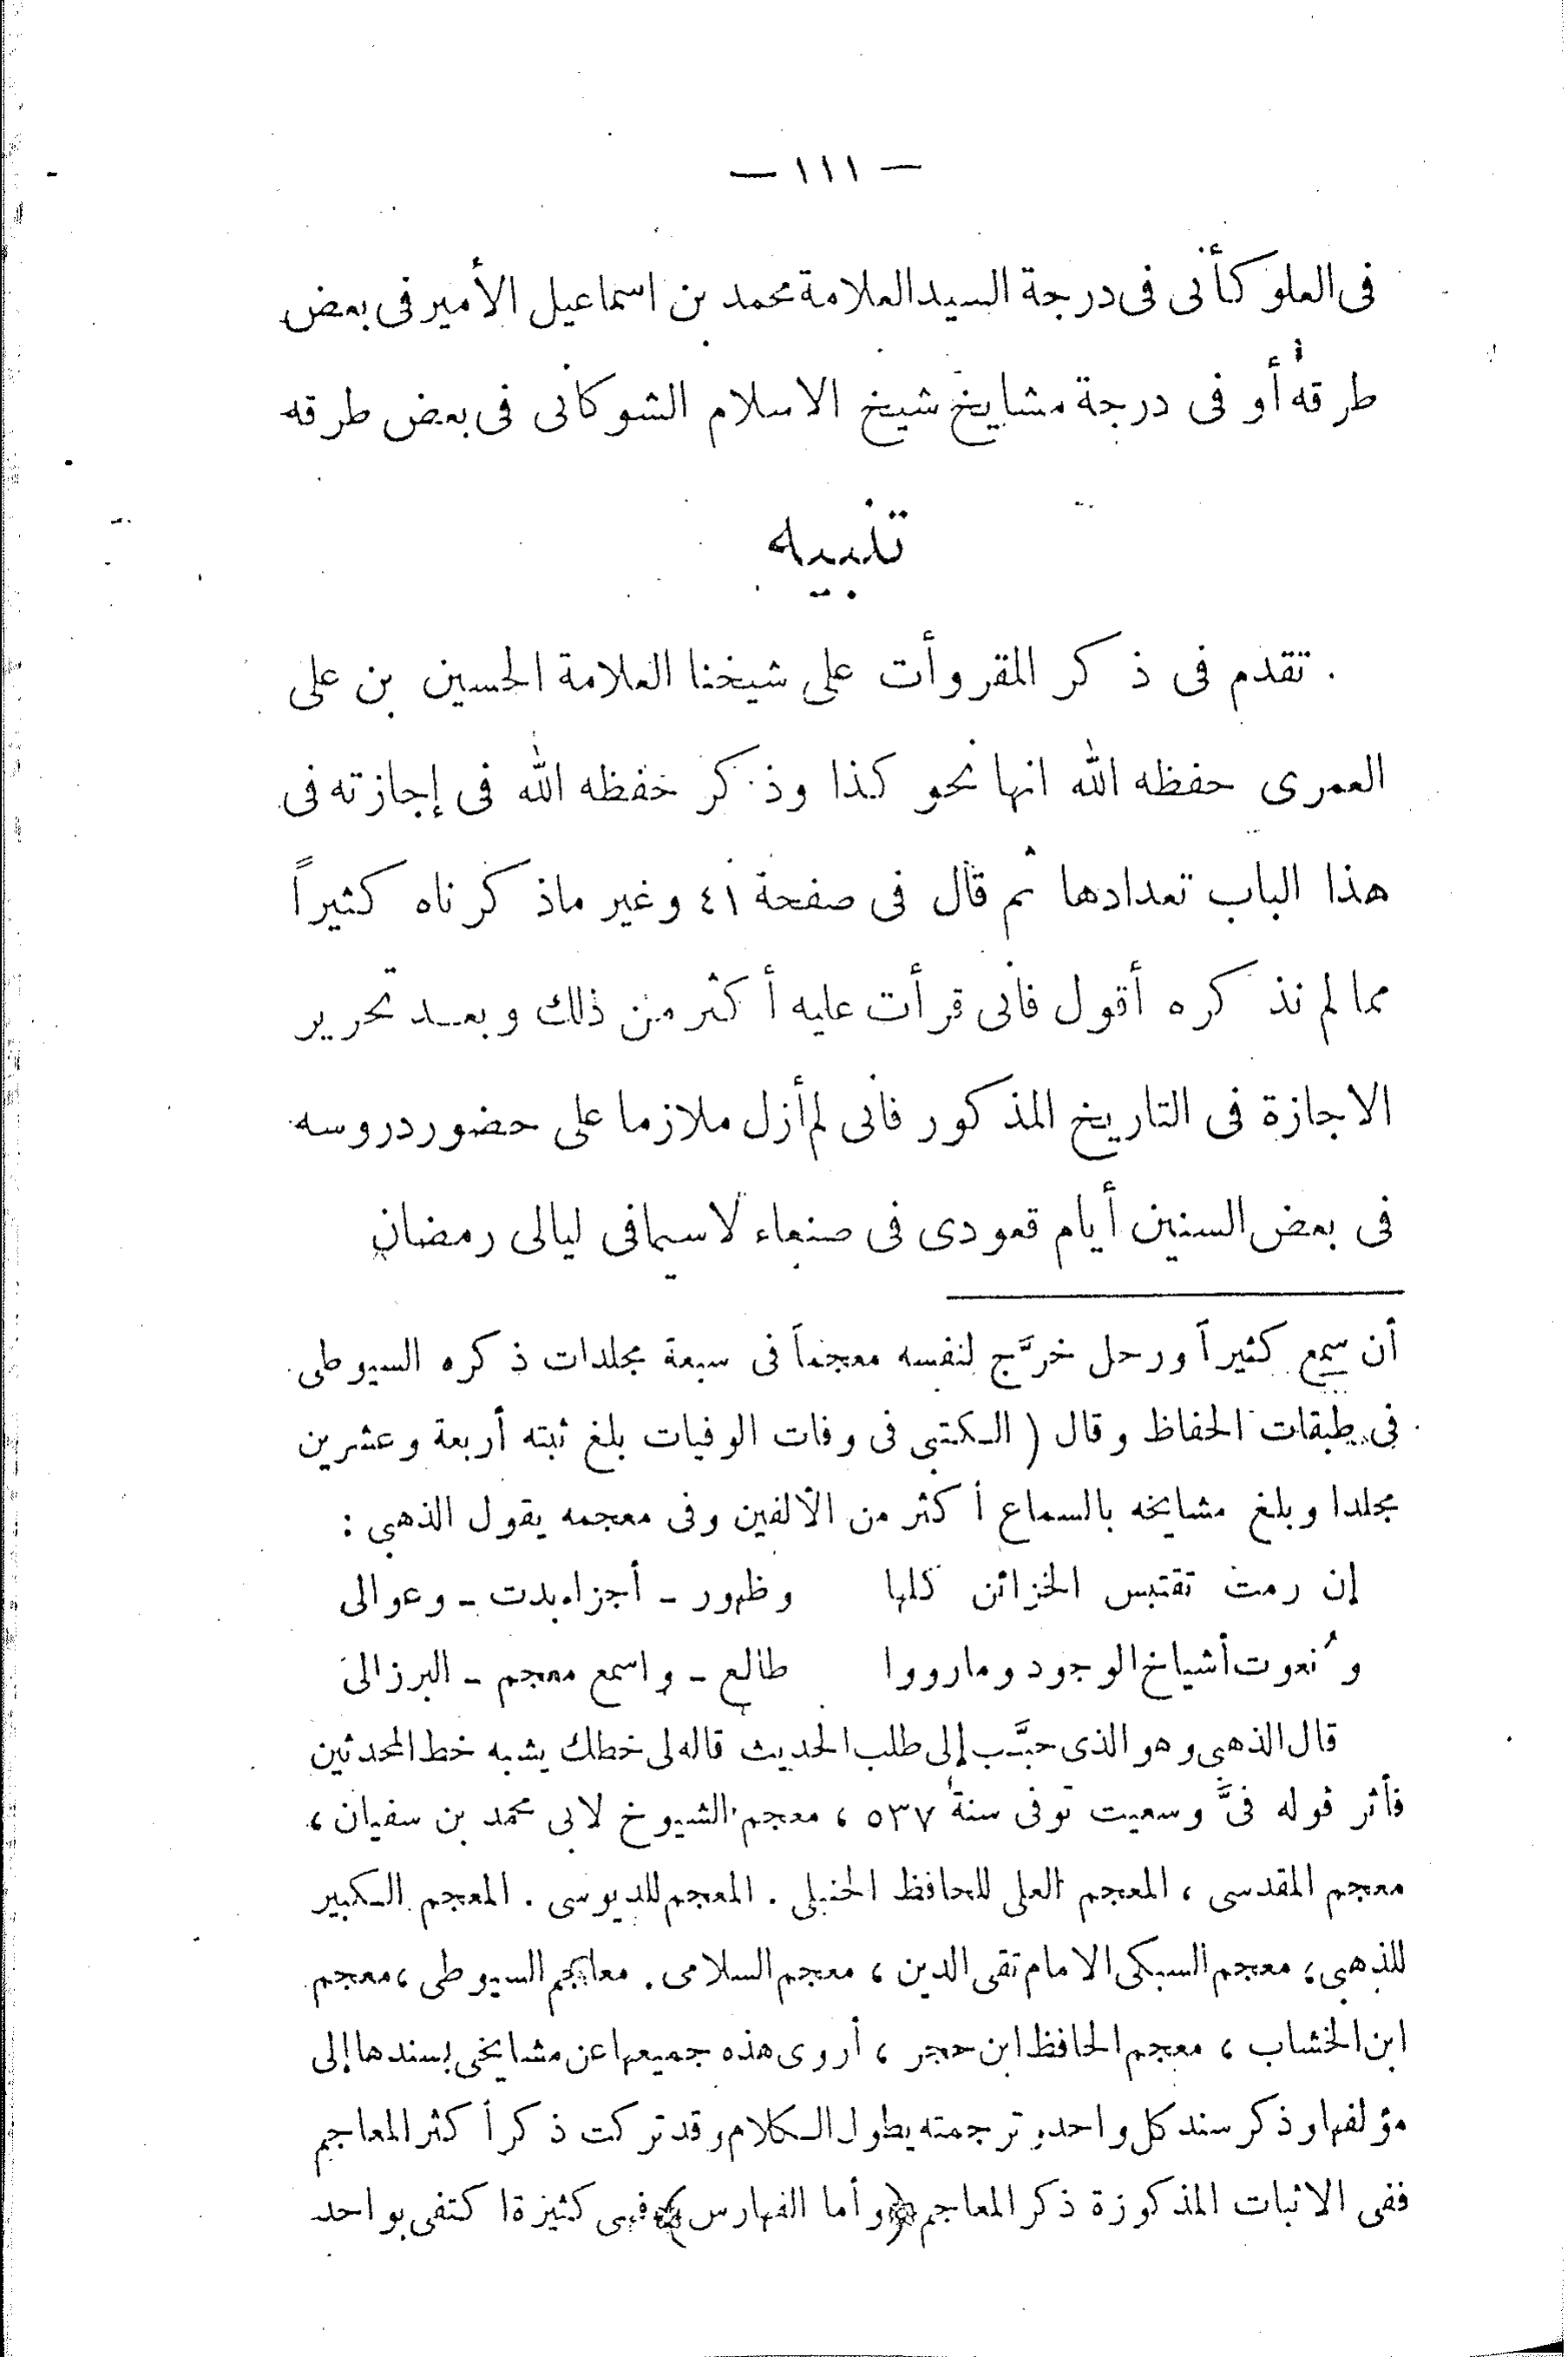 — ١١١ —
فى العلو كأنى فى درجة السيد العلامة محمد بن اسماعيل الأمير فى بعض
طرقه أو فى درجة مشايخ شيخ الاسلام الشوكانى فى بعض طرقه
تنبيه
تقدم فى ذكر المقروأت على شيخنا العلامة الحسين بن على
العمرى حفظه الله انها نحو كذا وذكر حفظه الله فى إجازته فى
هذا الباب تعدادها ثم قال فى صفحة ٤١ وغير ماذكرناه كثيراً
مما لم نذكره أقول فانى قرأت عليه أكثر من ذلك وبعد تحرير
الاجازة فى التاريخ المذكور فانى لم أزل ملازما على حضور دروسه
فى بعض السنين أيام قعودى فى صنعاء لاسيما فى ليالى رمضان
أن سمع كثيراً ورحل خرَّج لنفسه معجماً فى سبعة مجلدات ذكره السيوطى
فى طبقات الحفاظ وقال ( الكتبى فى وفات الوفيات بلغ ثبته أربعة وعشرين
مجلدا وبلغ مشايخه بالسماع أكثر من الألفين وفى معجمه يقول الذهبى :
إن رمت تقتبس الخزائن كلها وظهور ـ أجزاء بدت ـ وعوالى
ونُعوت أشياخ الوجود ومارووا طالع ـ واسمع معجم ـ البرزالى
قال الذهبى وهو الذى حبَّب إلى طلب الحديث قاله لى خطك يشبه خط المحدثين
فأثر قوله فىَّ وسعيت توفى سنة ٥٣٧ ، معجم الشيوخ لابى محمد بن سفيان ،
معجم المقدسى ، المعجم العلى للحافظ الحنبلى . المعجم للدبوسى . المعجم الكبير
للذهبى ، معجم السبكى الامام تقى الدين ، معجم السلامى . معاجم السيوطى ، معجم
ابن الخشاب ، معجم الحافظ ابن حجر ، أروى هذه جميعها عن مشايخى بسندها إلى
مؤلفها وذكر سند كل واحد وترجمته يطول الكلام وقد تركت ذكر أكثر المعاجم
ففى الاثبات المذكورة ذكر المعاجم ﴿وأما الفهارس﴾ فهى كثيرة اكتفى بواحد